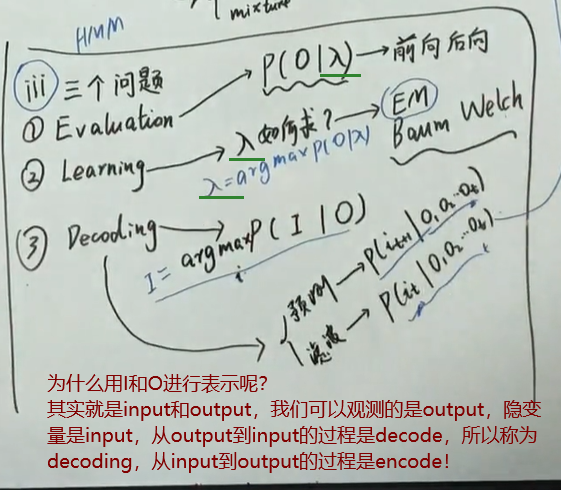 mixture
HMM
iii 三个问题
① Evaluation → P(O|λ) → 前向后向
② Learning → λ如何求? → EM
Baum Welch
λ=argmaxP(O|λ)
③ Decoding → argmaxP(I|O)
I=
预测 → P(it+1|O1O2…Ot)
滤波 → P(it|O1O2…Ot)
为什么用I和O进行表示呢?
其实就是input和output，我们可以观测的是output，隐变
量是input，从output到input的过程是decode，所以称为
decoding，从input到output的过程是encode！